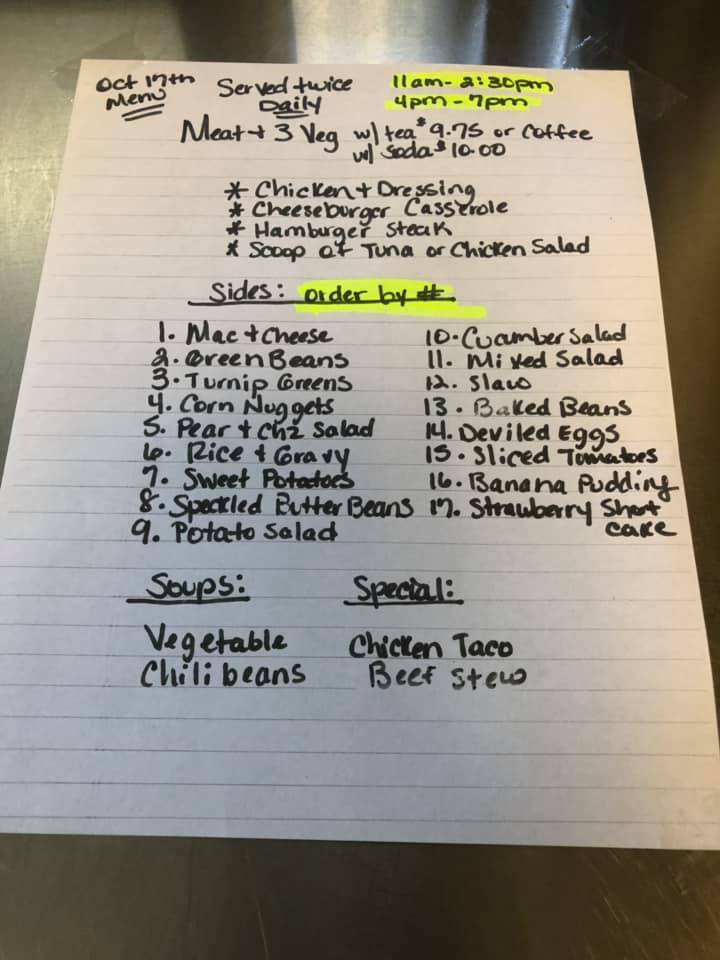 Oct 17th
Menu
Served twice
Daily
11am - 2:30pm
4pm - 7pm
Meat + 3 Veg w/ tea $9.75 or Coffee
w/ Soda $10.00
* Chicken + Dressing
* Cheeseburger Casserole
* Hamburger Steak
* Scoop of Tuna or Chicken Salad
Sides: order by #
1. Mac + Cheese
2. Green Beans
3. Turnip Greens
4. Corn Nuggets
5. Pear + Chz Salad
6. Rice + Gravy
7. Sweet Potatoes
8. Speckled Butter Beans
9. Potato Salad
10. Cucumber Salad
11. Mixed Salad
12. Slaw
13. Baked Beans
14. Deviled Eggs
15. Sliced Tomatoes
16. Banana Pudding
17. Strawberry Short
cake
Soups:
Vegetable
Chili beans
Special:
Chicken Taco
Beef Stew